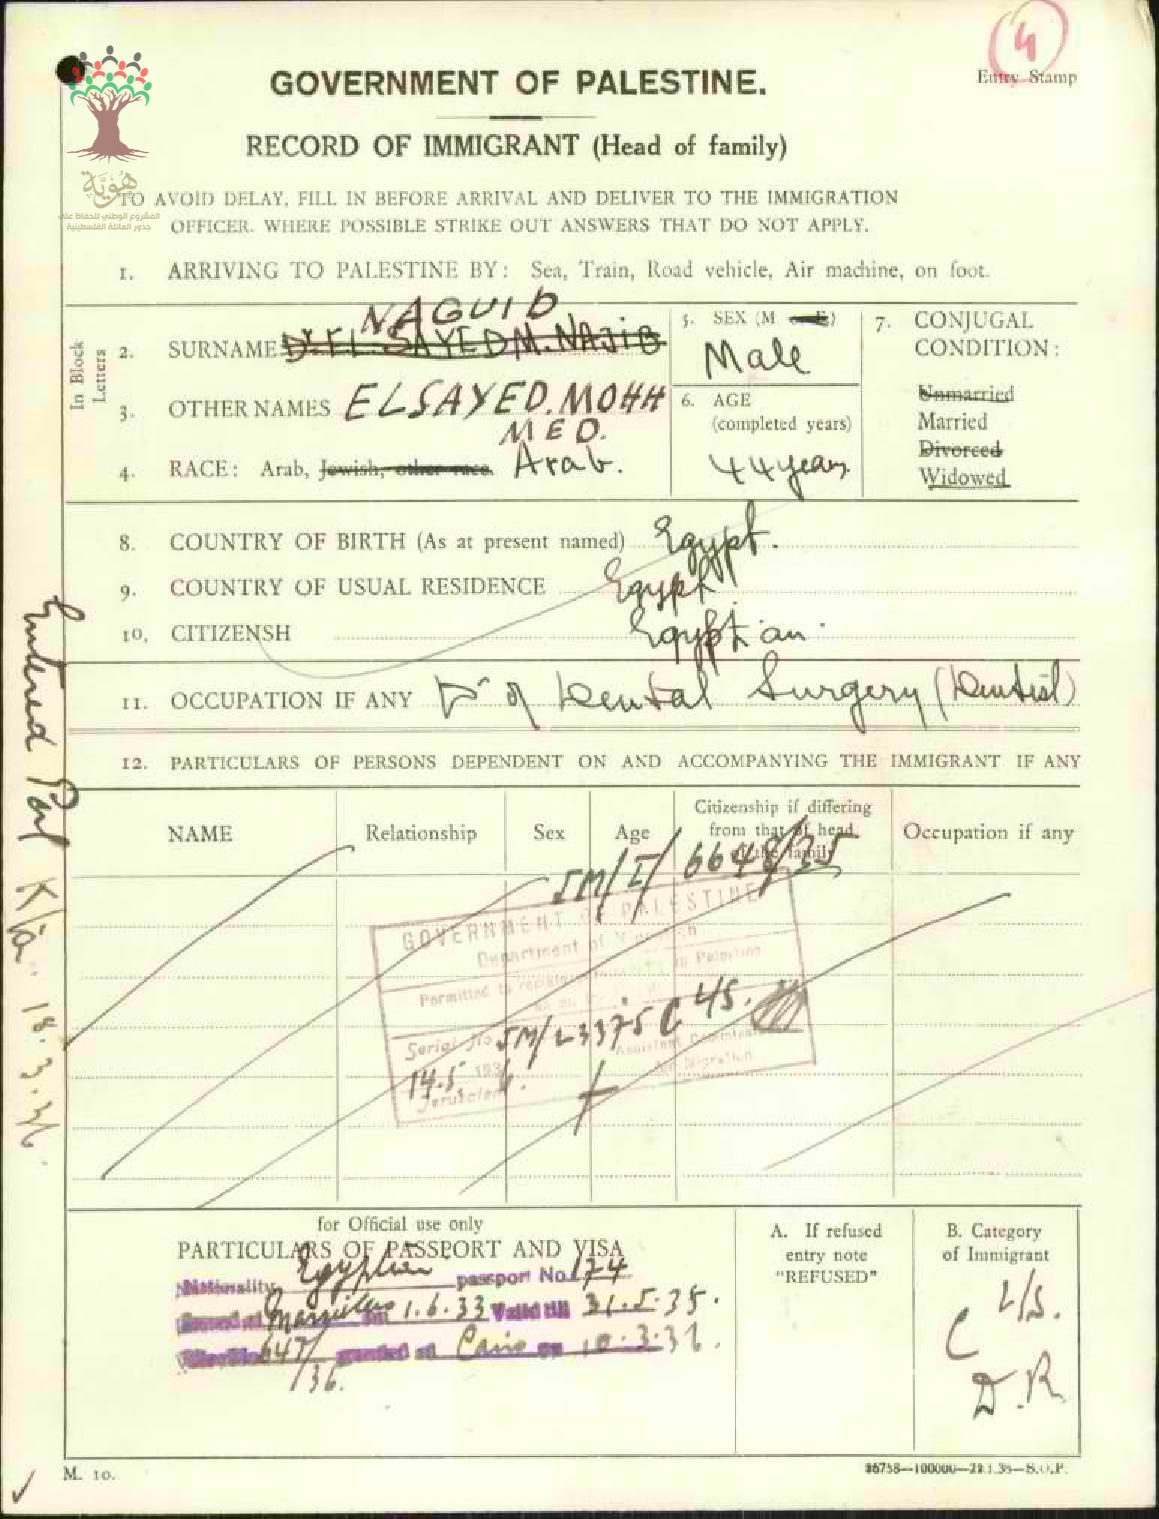 4
Entry Stamp
GOVERNMENT OF PALESTINE.
RECORD OF IMMIGRANT (Head of family)
هُوِيَّة
المشروع الوطني للحفاظ على
جذور العائلة الفلسطينية
TO AVOID DELAY, FILL IN BEFORE ARRIVAL AND DELIVER TO THE IMMIGRATION
OFFICER. WHERE POSSIBLE STRIKE OUT ANSWERS THAT DO NOT APPLY.
1. ARRIVING TO PALESTINE BY: Sea, Train, Road vehicle, Air machine, on foot.
In Block Letters
NAGUIB
2. SURNAME Dr. EL SAYED M. NAJIB
3. OTHER NAMES ELSAYED. MOHH
MED.
4. RACE: Arab, Jewish, other race. Arab.
5. SEX (M or F)
Male
6. AGE
(completed years)
44 years
7. CONJUGAL
CONDITION:
Unmarried
Married
Divorced
Widowed
8. COUNTRY OF BIRTH (As at present named) Egypt.
9. COUNTRY OF USUAL RESIDENCE Egypt
10. CITIZENSH Egyptian
11. OCCUPATION IF ANY Dr of Dental Surgery (Dentist)
12. PARTICULARS OF PERSONS DEPENDENT ON AND ACCOMPANYING THE IMMIGRANT IF ANY
NAME
Relationship
Sex
Age
Citizenship if differing
from that of head
of the family
Occupation if any
JM/I/6648/35
GOVERNMENT OF PALESTINE
Department of Migration
Permitted to remain permanently in Palestine
as an immigrant
Serial No. JM/23375 C L/S.
Assistant Commissioner
for Migration
14.5.1936.
Jerusalem
Entered Pal K/a. 18.3.36.
for Official use only
PARTICULARS OF PASSPORT AND VISA
Nationality Egyptian passport No. 174
Issued at Marseilles on 1.6.33 Valid till 31.5.35.
Visa No. 647/ granted at Cairo on 10.3.36.
/36.
A. If refused
entry note
"REFUSED"
B. Category
of Immigrant
C L/S.
D.R
M. 10.